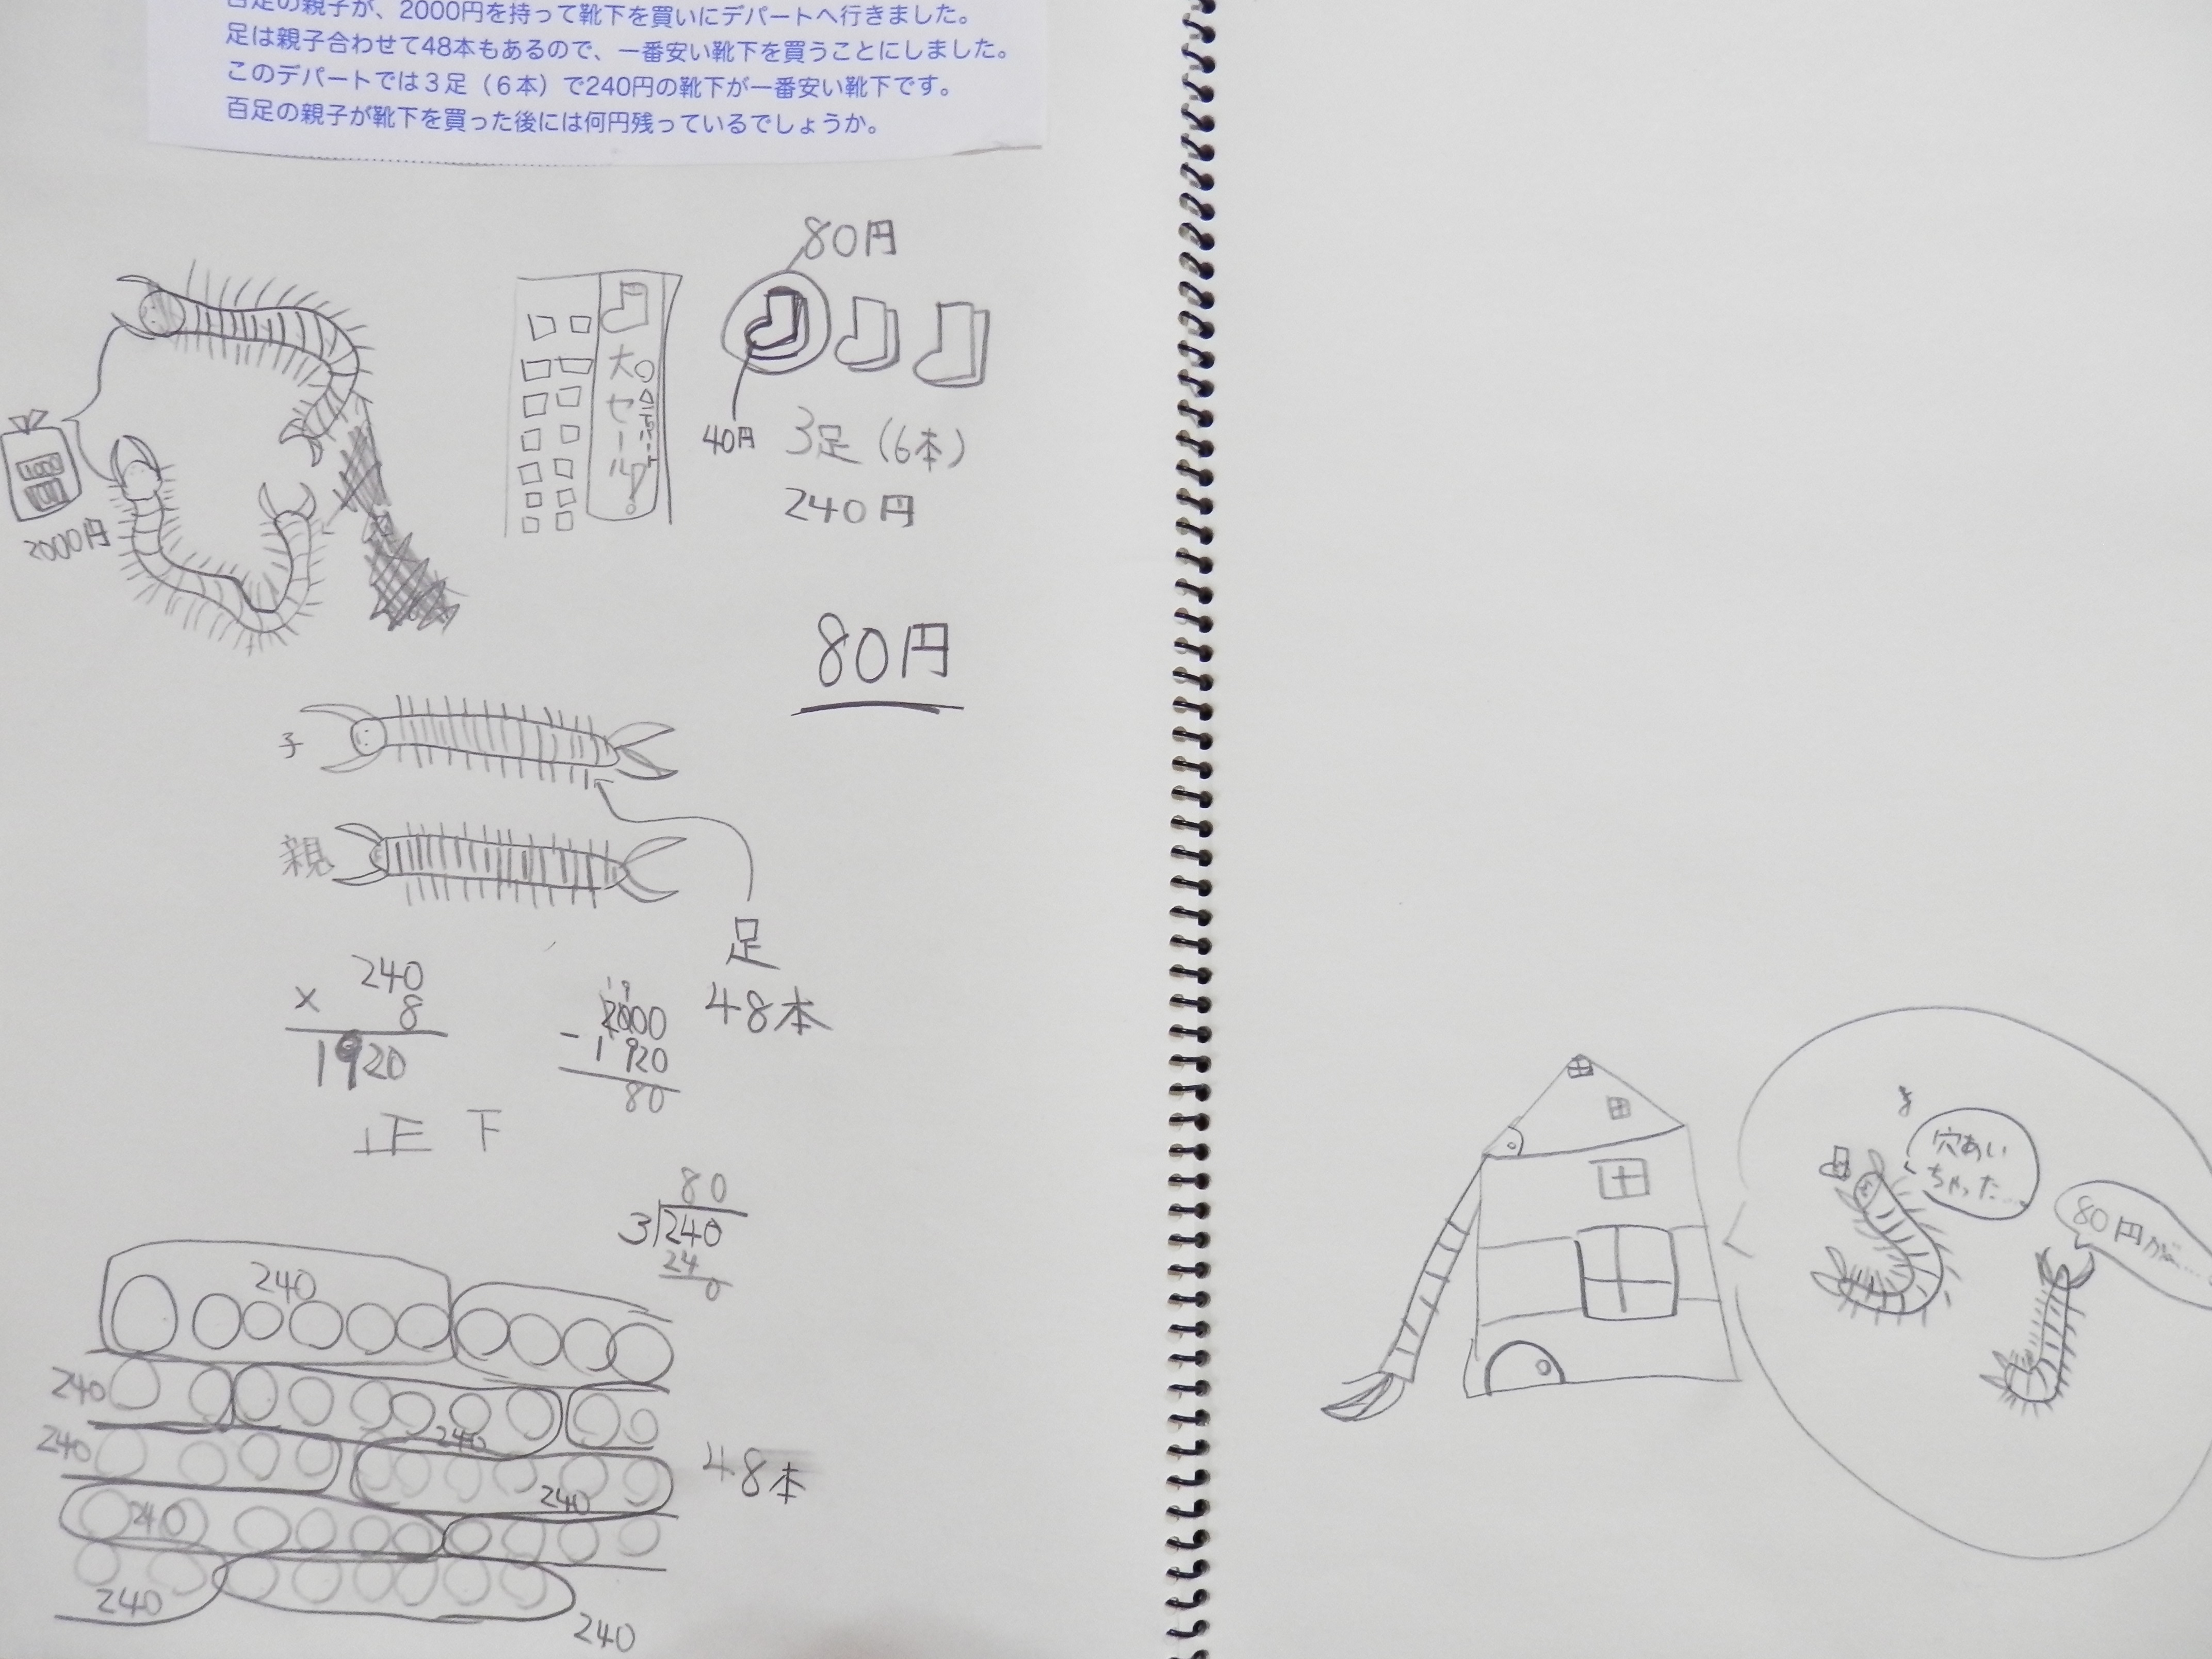 百足の親子が、2000円を持って靴下を買いにデパートへ行きました。
足は親子合わせて48本もあるので、一番安い靴下を買うことにしました。
このデパートでは3足（6本）で240円の靴下が一番安い靴下です。
百足の親子が靴下を買った後には何円残っているでしょうか。
80円
大セール!
40円
3足(6本)
240円
1000
1000
2000円
80円
子
親
足
48本
240
× 8
1920
19
2000
- 1920
80
正 下
80
3)240
24
0
240
240
240
240
240
240
240
240
48本
穴あい
ちゃった…
80円が…